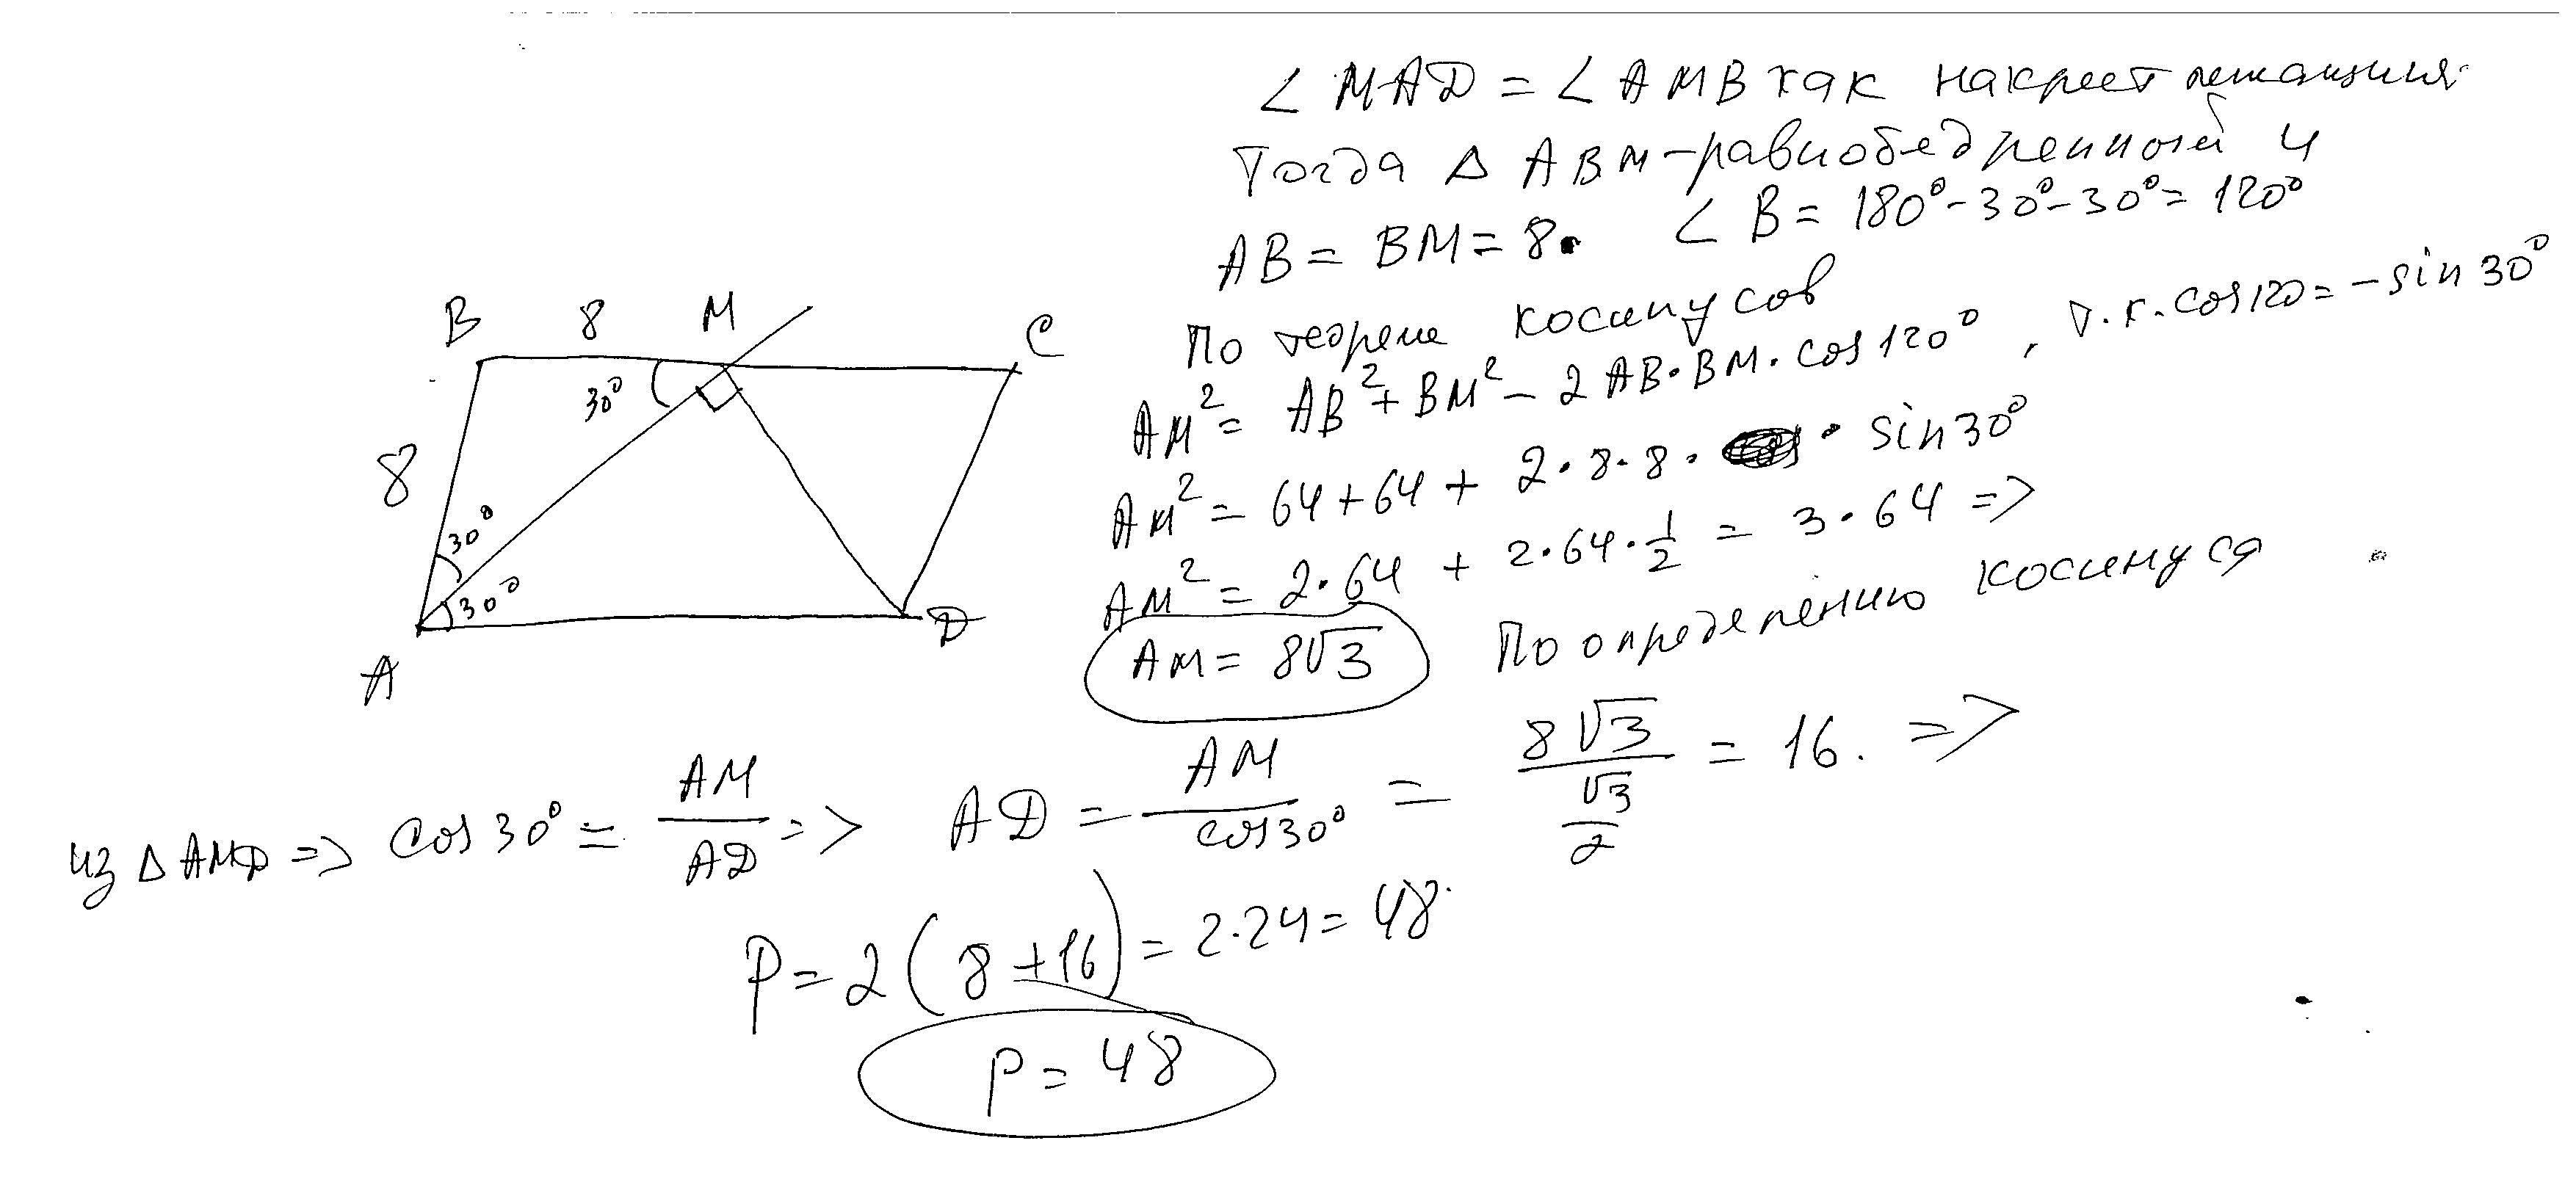 ∠ MAD = ∠ AMB как накрест лежащие.
Тогда △ ABM - равнобедренный и
AB = BM = 8. ∠ B = 180° - 30° - 30° = 120°
По теореме косинусов
AM² = AB² + BM² - 2AB·BM·cos120°, т.к. cos120 = -sin30°
AM² = 64 + 64 + 2·8·8· · sin30°
AM² = 2·64 + 2·64·1/2 = 3·64 =>
AM = 8√3 По определению косинуса
из △ AMD => cos30° = AM/AD => AD = AM/cos30° = 8√3/(√3/2) = 16. =>
P = 2(8+16) = 2·24 = 48.
P = 48
B 8 M C
30°
8
30°
30°
A D